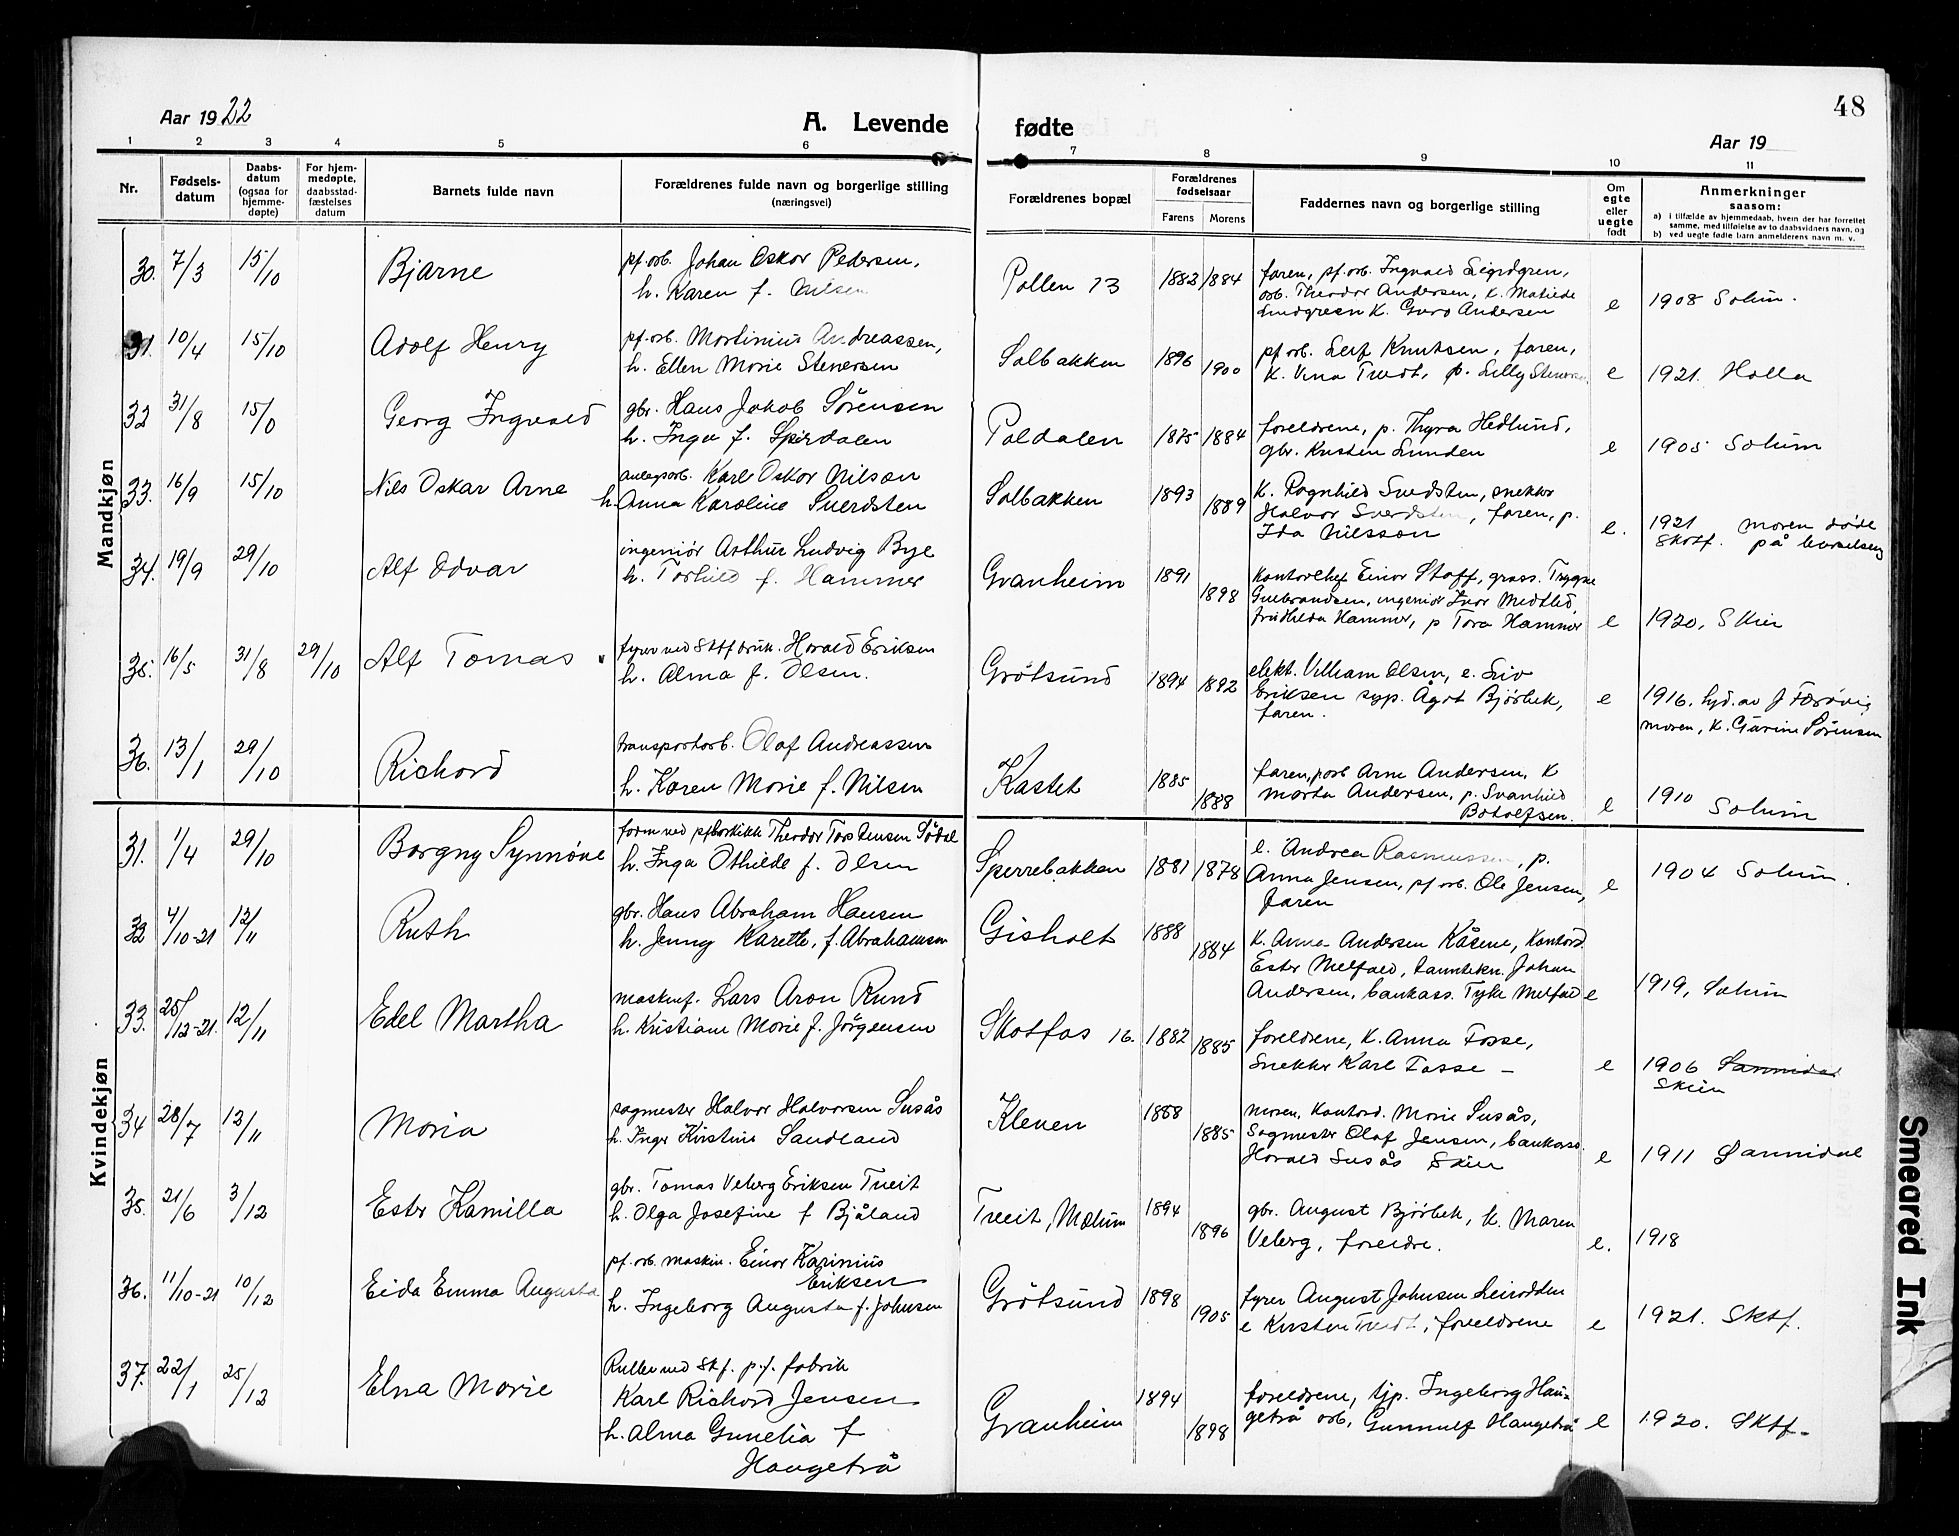 48
Aar 1922
A. Levende fødte
Aar 19
1 2 3 4 5 6 7 8 9 10 11
Nr.
Fødsels-
datum
Daabs-
datum
(ogsaa for
hjemme-
døpte)
For hjem-
medøpte,
daabsstad-
fæstelses
datum
Barnets fulde navn
Forældrenes fulde navn og borgerlige stilling
(næringsvei)
Forældrenes bopæl
Forældrenes
fødselsaar
Farens Morens
Faddernes navn og borgerlige stilling
Om
egte
eller
uegte
født
Anmerkninger
saasom:
a) i tilfælde av hjemmedaab, hvem der har forrettet
samme, med tilføielse av to daabsvidners navn, og
b) ved uegte fødte barn anmelderens navn m. v.
Mandkjøn
30. 7/3 15/10 Bjarne
pf. arb. Johan Oskar Pedersen,
h. Karen f. Nilsen
Pollen 13 1883 1884
faren, pf. arb. Ingvald
arb. Theodor Andersen, k. Matilde
k. Guro Andersen
e 1908 Solum.
31. 10/4 15/10 Adolf Henry
pf. arb. Martinius Andreassen,
h. Ellen Marie Stenersen
Solbakken 1896 1900
pf arb. Leif Knutsen, faren,
k. Vina Tvedt, p. Lilly
e 1921. Holla
32 31/8 15/0 Georg Ingvald
gbr. Hans Jakob Sørensen
h. Inga f. Spirdalen
Poldalen 1875 1884
foreldrene, p. Thyra Hedlund,
gbr. Kristen Lunden
e 1905 Solum
33. 16/9 15/10 Nils Oskar Arne
anlegsarb. Karl Oskar Nilson
h. Anna Karoline Sverdsten
Solbakken 1893 1889
k. Ragnhild Sverdsten, snekker
Halvor Sverdsten, faren, p.
Ida Nilsson
e. 1921 moren døde
Skotf. på barselseng
34. 19/9 29/10 Alf Odvar
ingeniør Arthur Ludvig Bye
h. Torhild f. Hammer
Granheim 1891 1898
Kontorchef Einar Staff, gross. Trygve
Gulbrandsen, ingeniør Ivar
fru Hilda Hammer, p Tora Hammer
e 1920, Skien
35. 16/5 31/8 29/10 Alf Tomas
fyrer ved Skotf bruk. Harald Eriksen
h. Alma f. Olsen.
Grøtsund 1894 1892
elekt. Villiam Olsen, e. Siv
Eriksen syp. Ågot Bjørbek,
faren.
e 1916. hjd. av J Færøvig
moren, k. Gurine Sørensen
36. 13/1 29/10 Richard
transportarb. Olaf Andreassen
h. Karen Marie f. Nilsen
Kastet 1885 1888
faren, arb Arne Andersen, k
Marta Andersen, p. Svanhild
Botolfsen.
e 1910 Solum
Kvindekjøn
31. 1/4 29/10 Borgny Synnøve
form ved pf Theodor Torstensen Sødal
h. Inga Othilde f. Olsen
Sperrebakken 1881 1878
e. Andrea Rasmussen, p.
Anna Jensen, pf arb. Ole Jensen,
faren
e 1904 Solum.
32 4/10-21 12/11 Ruth
gbr. Hans Abraham Hansen
h. Jenny Karette, f. Abrahamsen
Gisholt 1888 1884
k. Anna Andersen Kåsene, kontord.
Ester Melfald, tanntekn. Johan
Andersen, bankass. Tyke Melfald
e 1919, Solum
33. 25/12-21. 12/11 Edel Martha
maskinf. Lars Aron Rund
h. Kristiane Marie f. Jørgensen
Skotfos 16. 1882 1885
foreldrene, k. Anna Fosse,
Snekker Karl Fosse –
e 1906 Sannidal
Skien
34 28/7 12/11 Maria
sagmester Halvor Halvorsen Susås
h. Inger Kirstine Sandland
Kleven 1888 1885
moren, kontord. Marie Susås,
Sagmester Olaf Jensen, bankass
Harald Susås Skien
e 1911 Sannidal
35. 21/6 3/12 Ester Kamilla
gbr. Tomas Veberg Eriksen Tveit
h. Olga Josefine f Bjåland
Tveit, Mælum 1894 1896
gbr. August Bjørbek, k. Maren
Veberg, foreldre.
e. 1918
36. 11/10-21 10/12 Eida Emma Augusta
pf. arb. maskin. Einar Karinius
Eriksen
h. Ingeborg Augusta f. Johnsen
Grøtsund 1898 1905
fyrer August Johnsen Leirodden
e Kirsten Tvedt, foreldrene
e 1921. Sktf.
37. 22/1 25/12 Elna Marie
Ruller ved Skf. p.f. fabrik
Karl Richard Jensen
h. Alma Gunelia f
Haugetrå
Granheim 1894 1898
foreldrene, tjp. Ingeborg Hau-
getrå arb, Gunnulf Haugetrå
e 1920. Sktf.
Smeared Ink